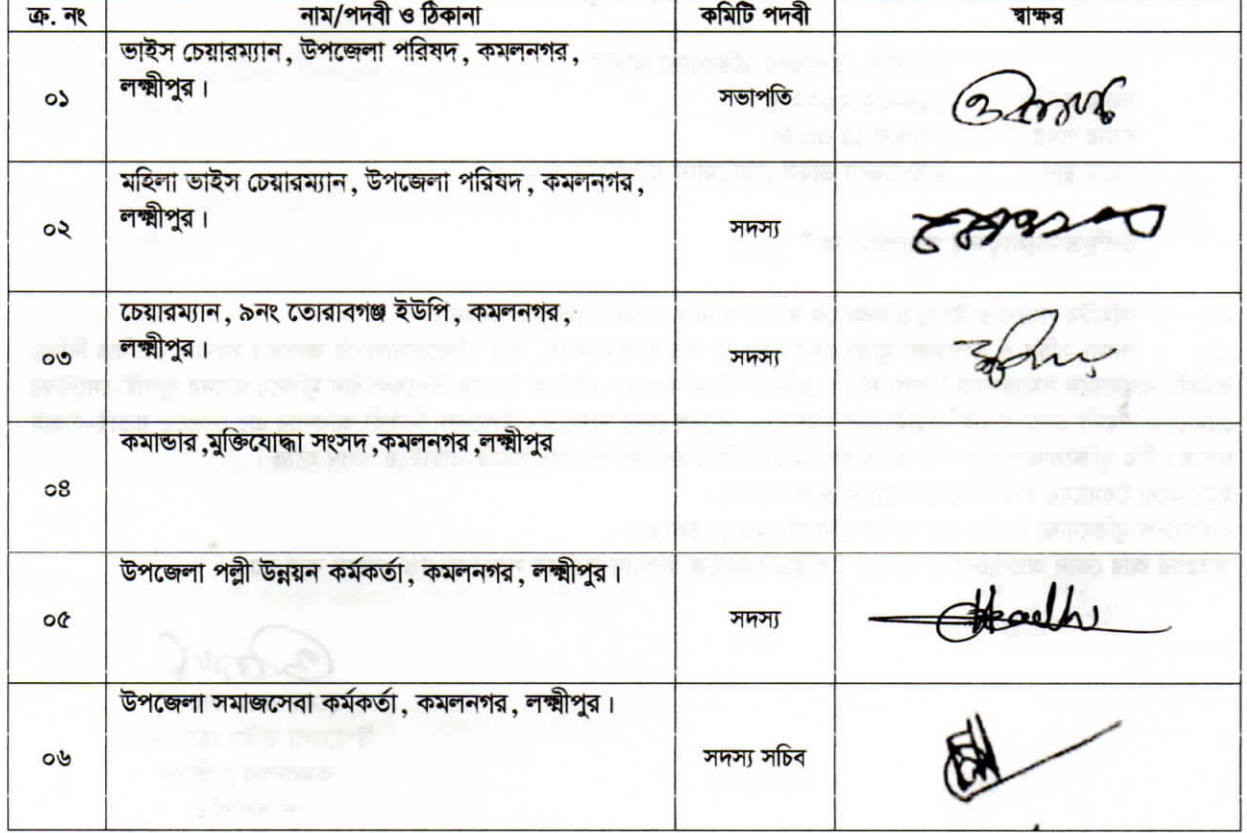 ক্র. নং নাম/পদবী ও ঠিকানা কমিটি পদবী স্বাক্ষর
ভাইস চেয়ারম্যান, উপজেলা পরিষদ, কমলনগর,
লক্ষ্মীপুর।
০১ সভাপতি
মহিলা ভাইস চেয়ারম্যান, উপজেলা পরিষদ, কমলনগর,
লক্ষ্মীপুর।
০২ সদস্য
চেয়ারম্যান, ৯নং তোরাবগঞ্জ ইউপি, কমলনগর,
লক্ষ্মীপুর।
০৩ সদস্য
কমান্ডার,মুক্তিযোদ্ধা সংসদ,কমলনগর,লক্ষ্মীপুর
০৪
উপজেলা পল্লী উন্নয়ন কর্মকর্তা, কমলনগর, লক্ষ্মীপুর।
০৫ সদস্য
উপজেলা সমাজসেবা কর্মকর্তা, কমলনগর, লক্ষ্মীপুর।
০৬ সদস্য সচিব